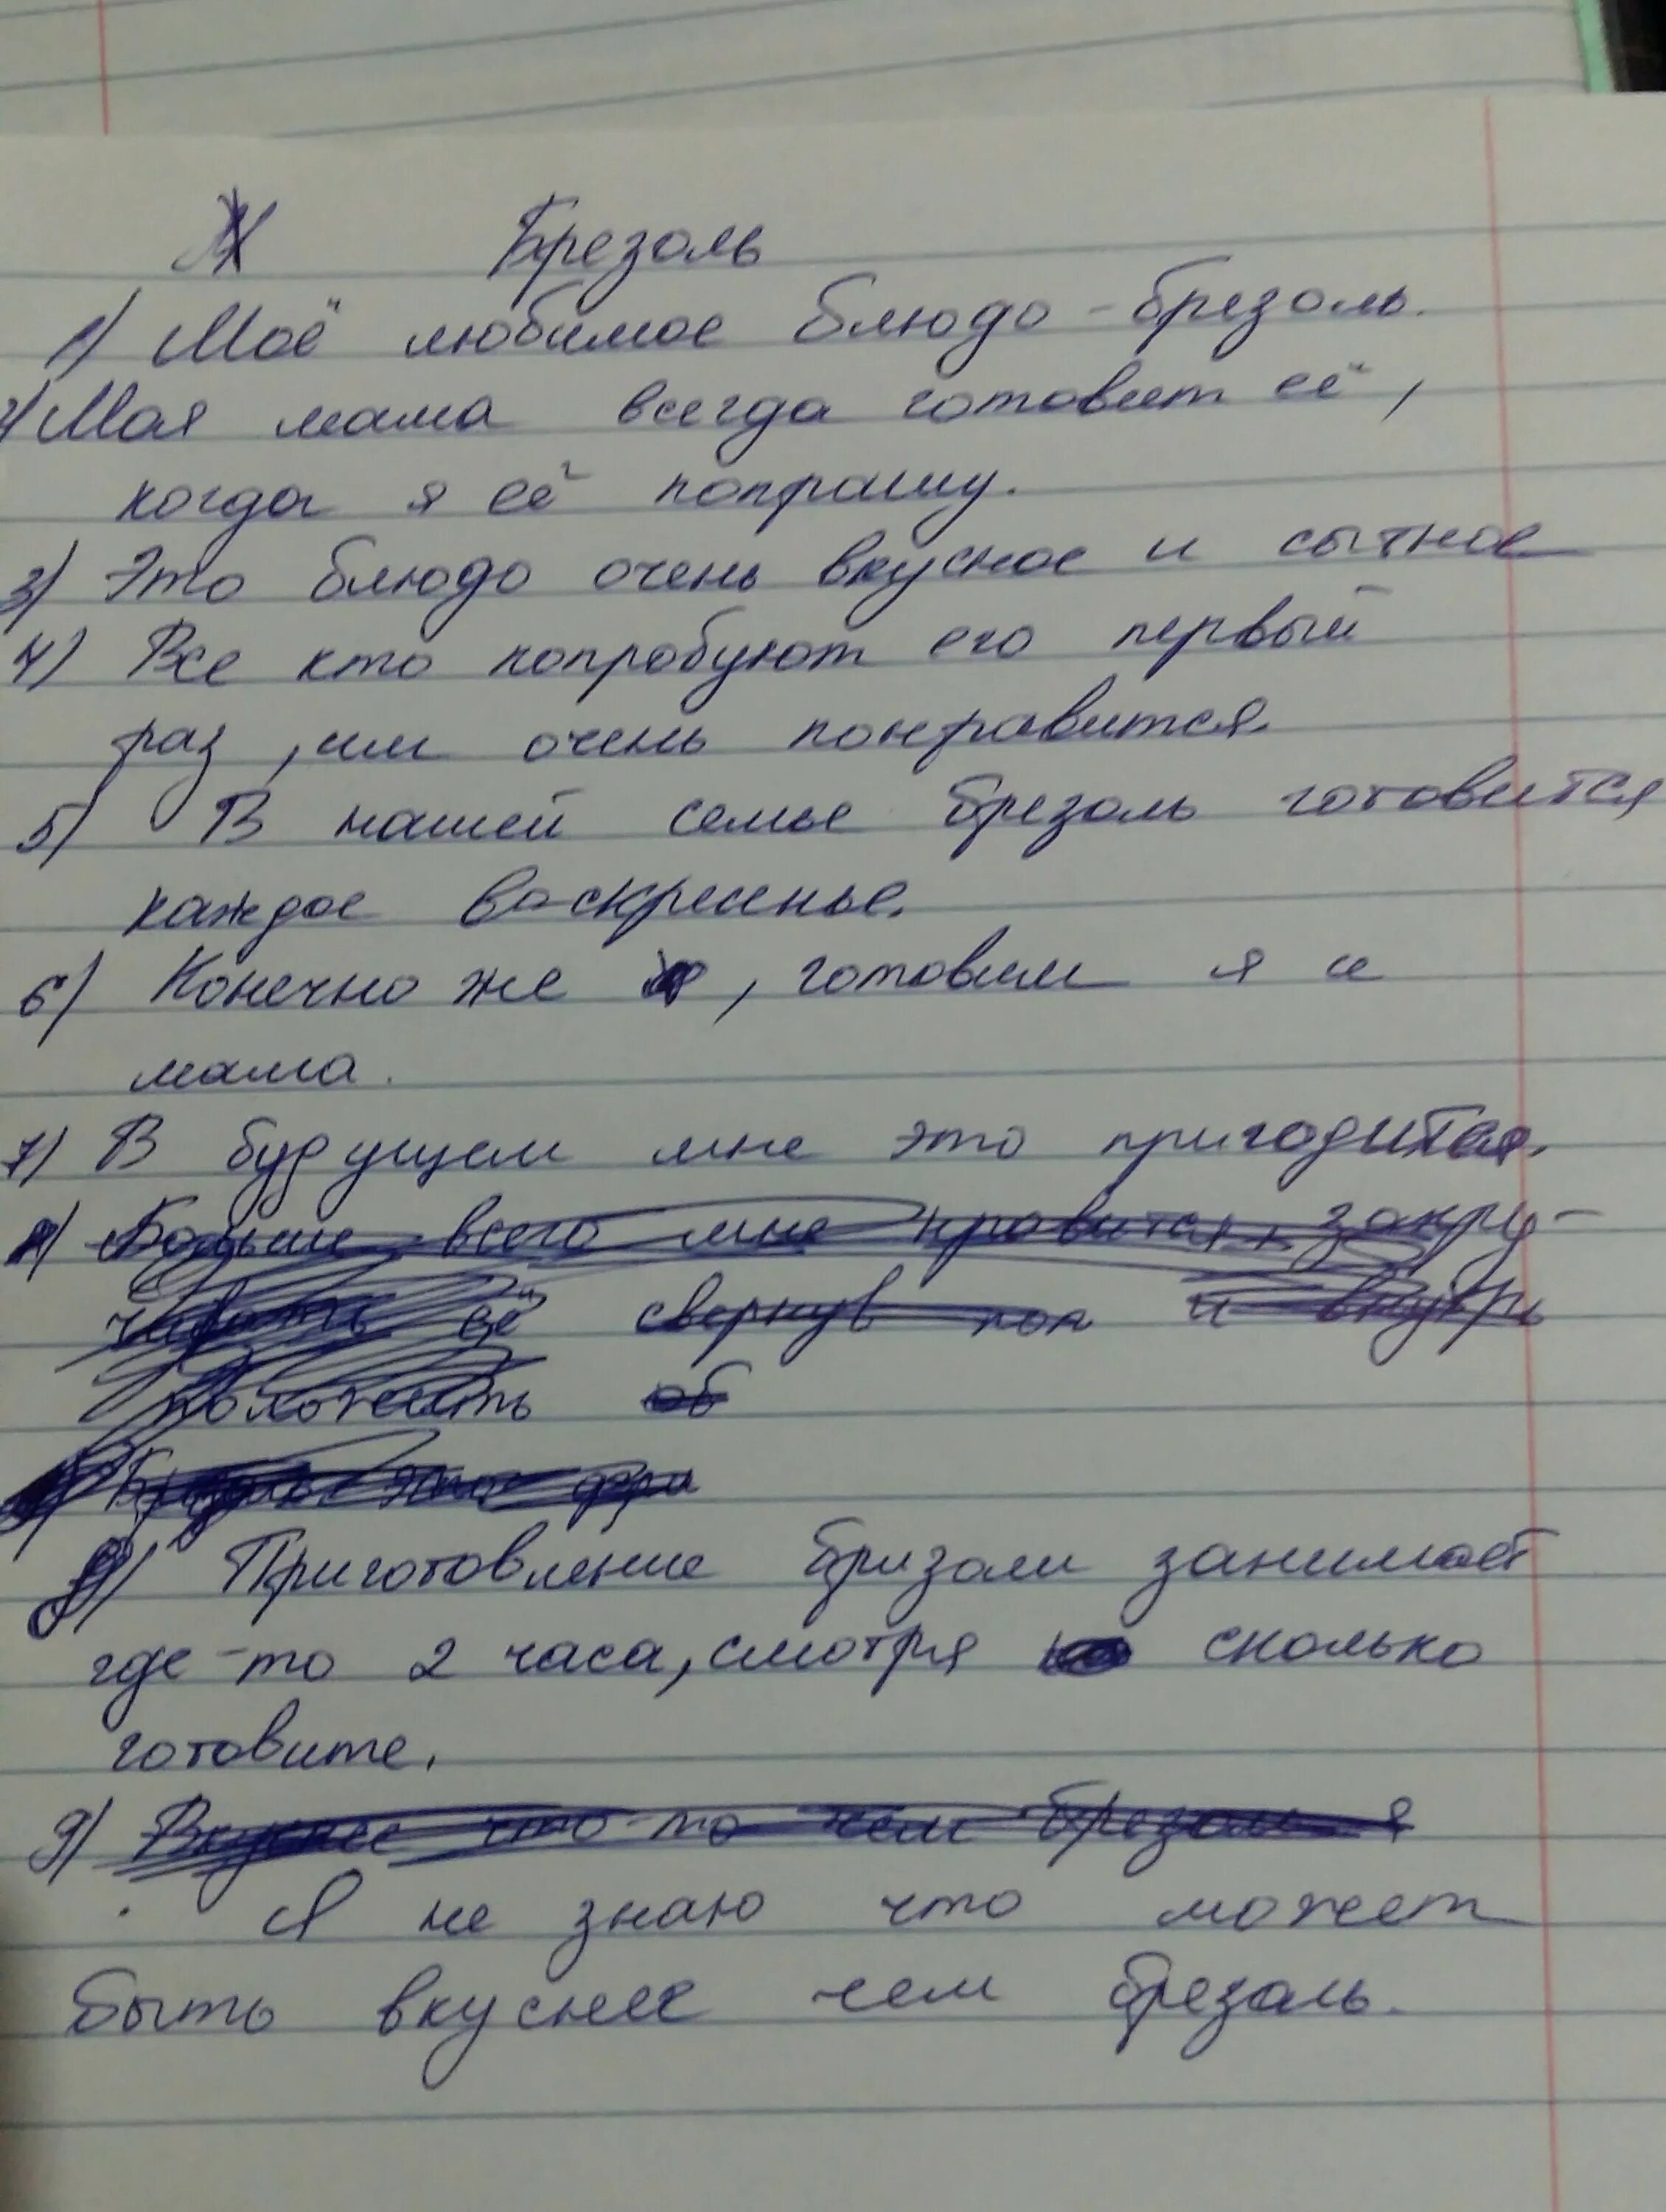 Брезоль
1) Моё любимое блюдо - брезоль.
2) Моя мама всегда готовит её,
когда я её попрашу.
3) Это блюдо очень вкусное и сытное
4) Все кто попробуют его первый
раз, им очень понравится.
5) В нашей семье брезоль готовится
каждое воскресенье.
6) Конечно же , готовим я и
мама.
7) В будущем мне это пригодится.
8) Больше всего мне нравится, закру-
чивать её свернув поп и внутрь
положить об
Брезоль это фри
8) Приготовление бризоли занимает
где-то 2 часа, смотря сколько
готовите.
9) Вкуснее что-то чем брезоль я
Я не знаю что может
быть вкуснее чем брезоль.